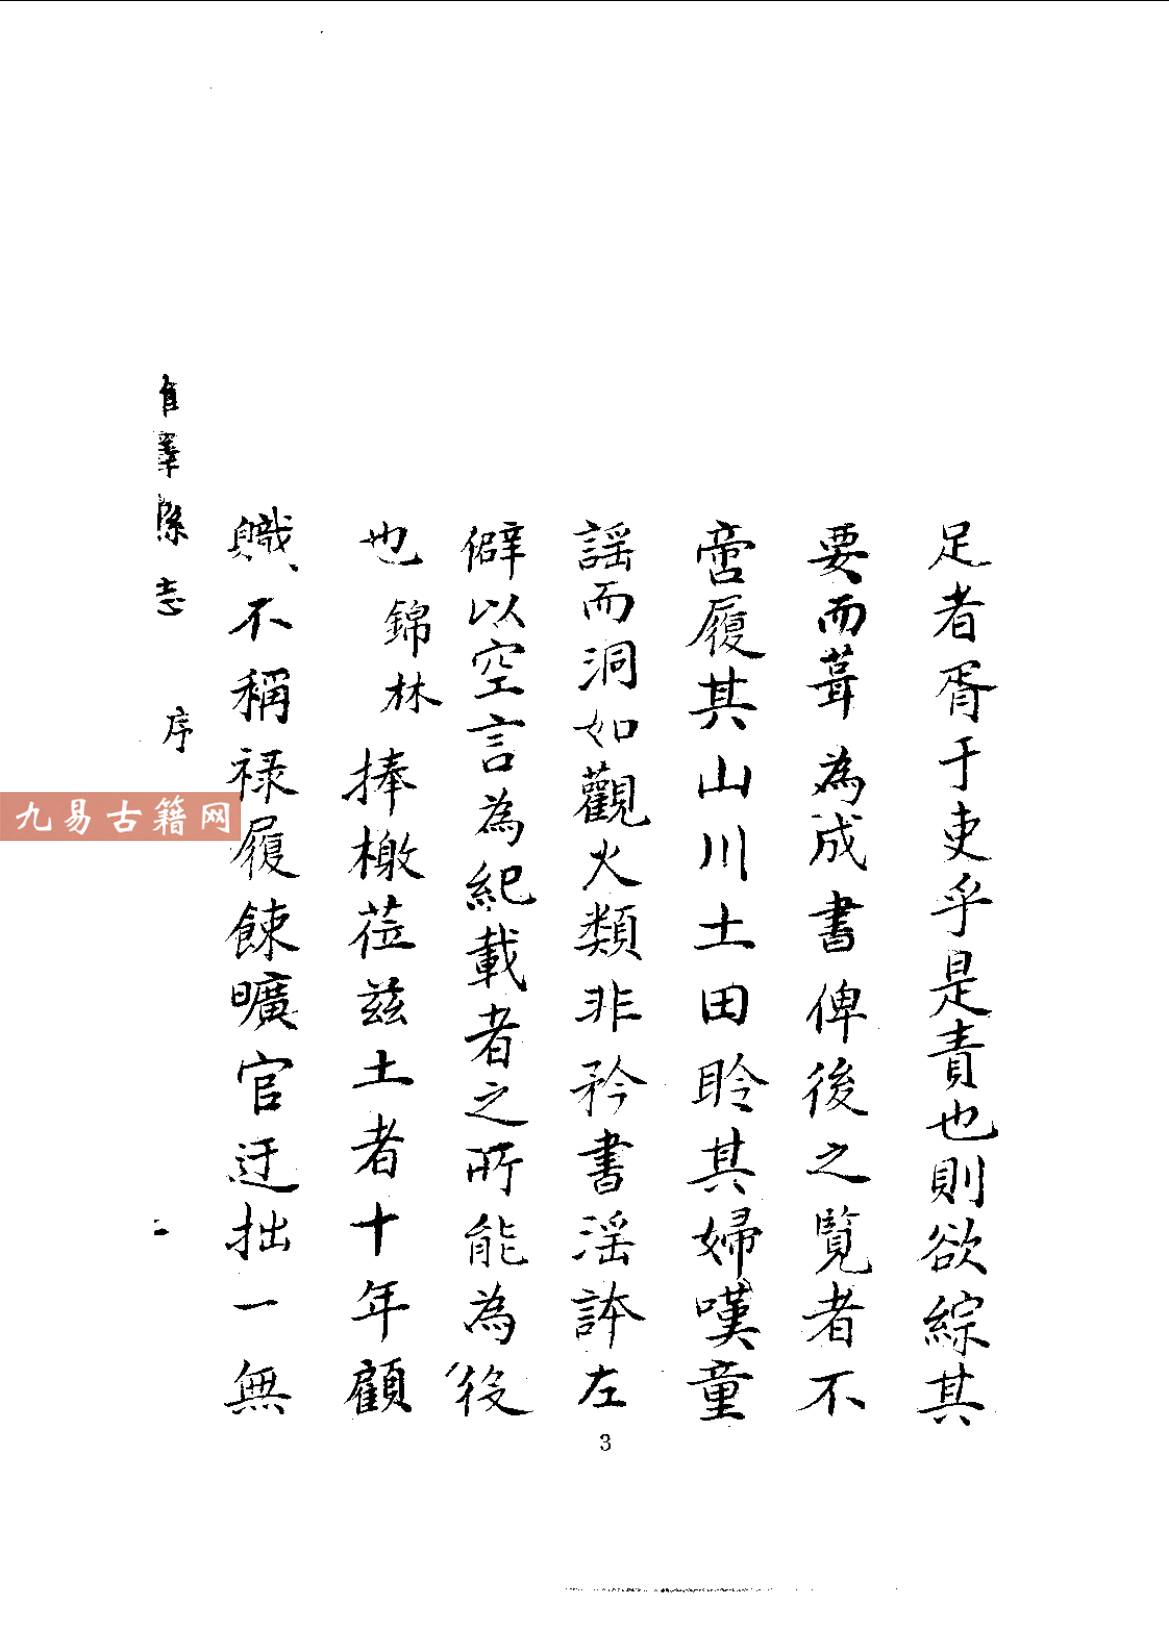 足者胥于吏乎是責也則欲綜其
要而葺為成書俾後之覽者不
啻履其山川土田聆其婦嘆童
謡而洞如觀火類非矜書淫誇左
僻以空言為紀載者之所能為役
也錦林捧檄莅兹土者十年顧
職不稱禄履餗曠官迂拙一無
澤縣志 序 二
3
九易古籍网